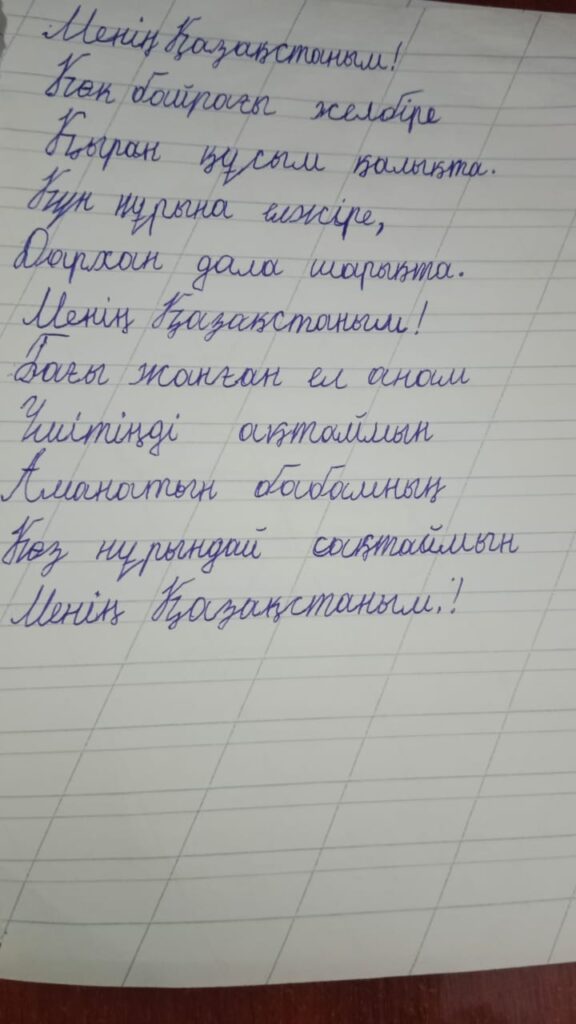 Менің Қазақстаным!
Көк байрағы желбіре
Қыран құсым қалықта.
Күн нұрына елжіре,
Дархан дала шарықта.
Менің Қазақстаным!
Бағы жанған ел анам
Үмітіңді ақтаймын
Аманатын бабамның
Көз нұрындай сақтаймын
Менің Қазақстаным.!